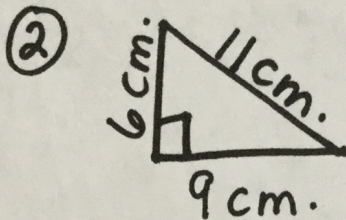 ②
6 cm.
11 cm.
9 cm.